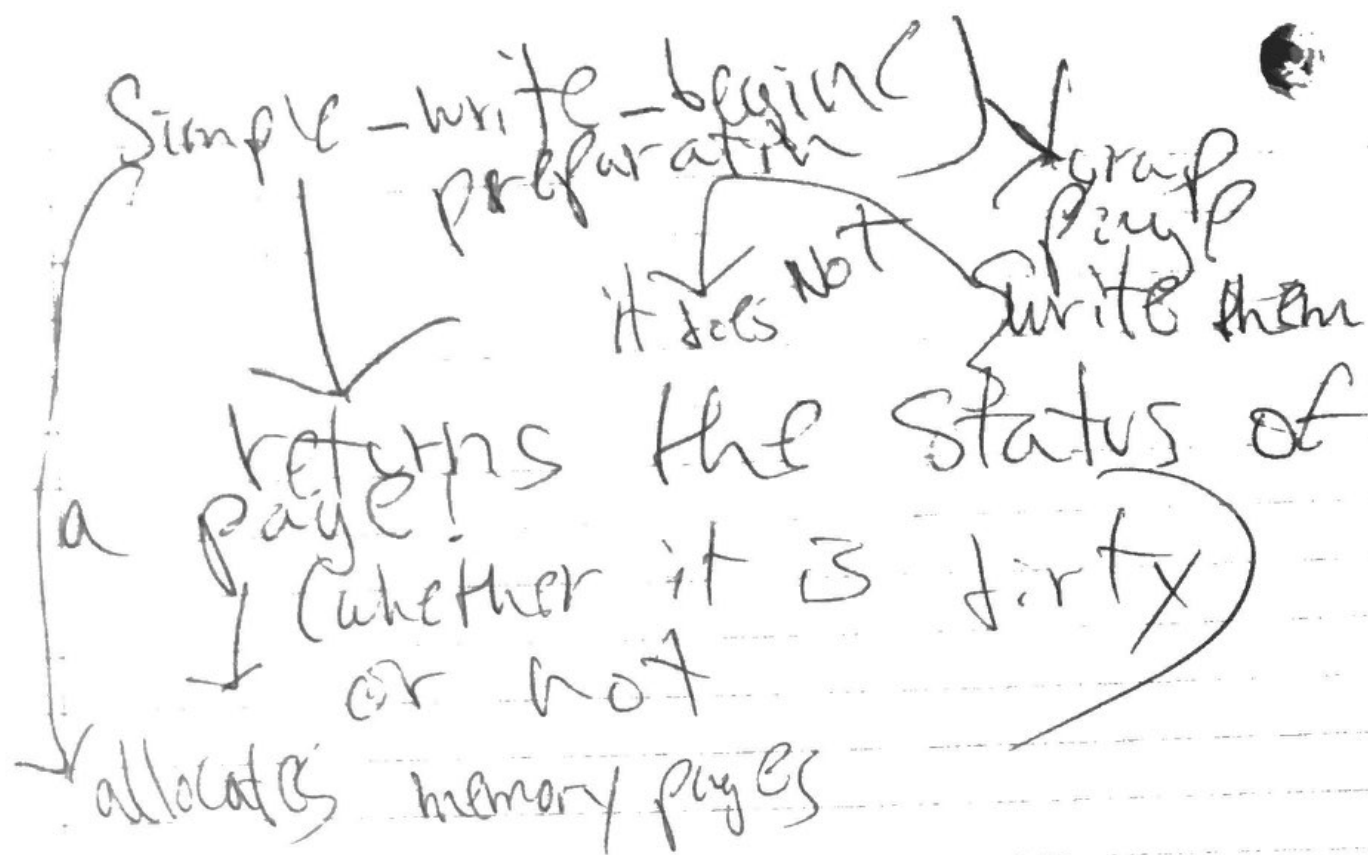 Simple_write_begin( )
preparation
grap
page
it does NOT
write them
returns the status of
a page!
(whether it is dirty
or not
allocates memory pages